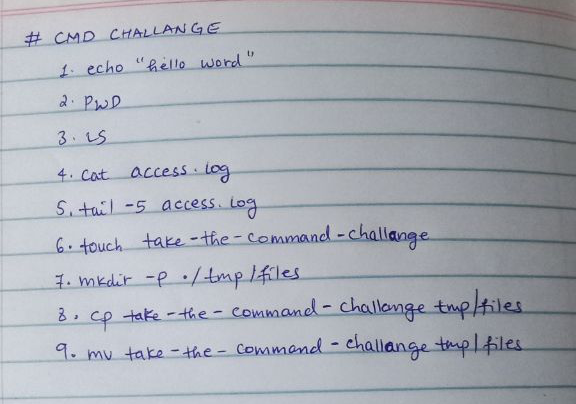 # CMD CHALLANGE
1. echo "hello word"
2. PWD
3. LS
4. cat access.log
5. tail -5 access.log
6. touch take-the-command-challange
7. mkdir -p ./tmp/files
8. cp take-the-command-challange tmp/files
9. mv take-the-command-challange tmp/files